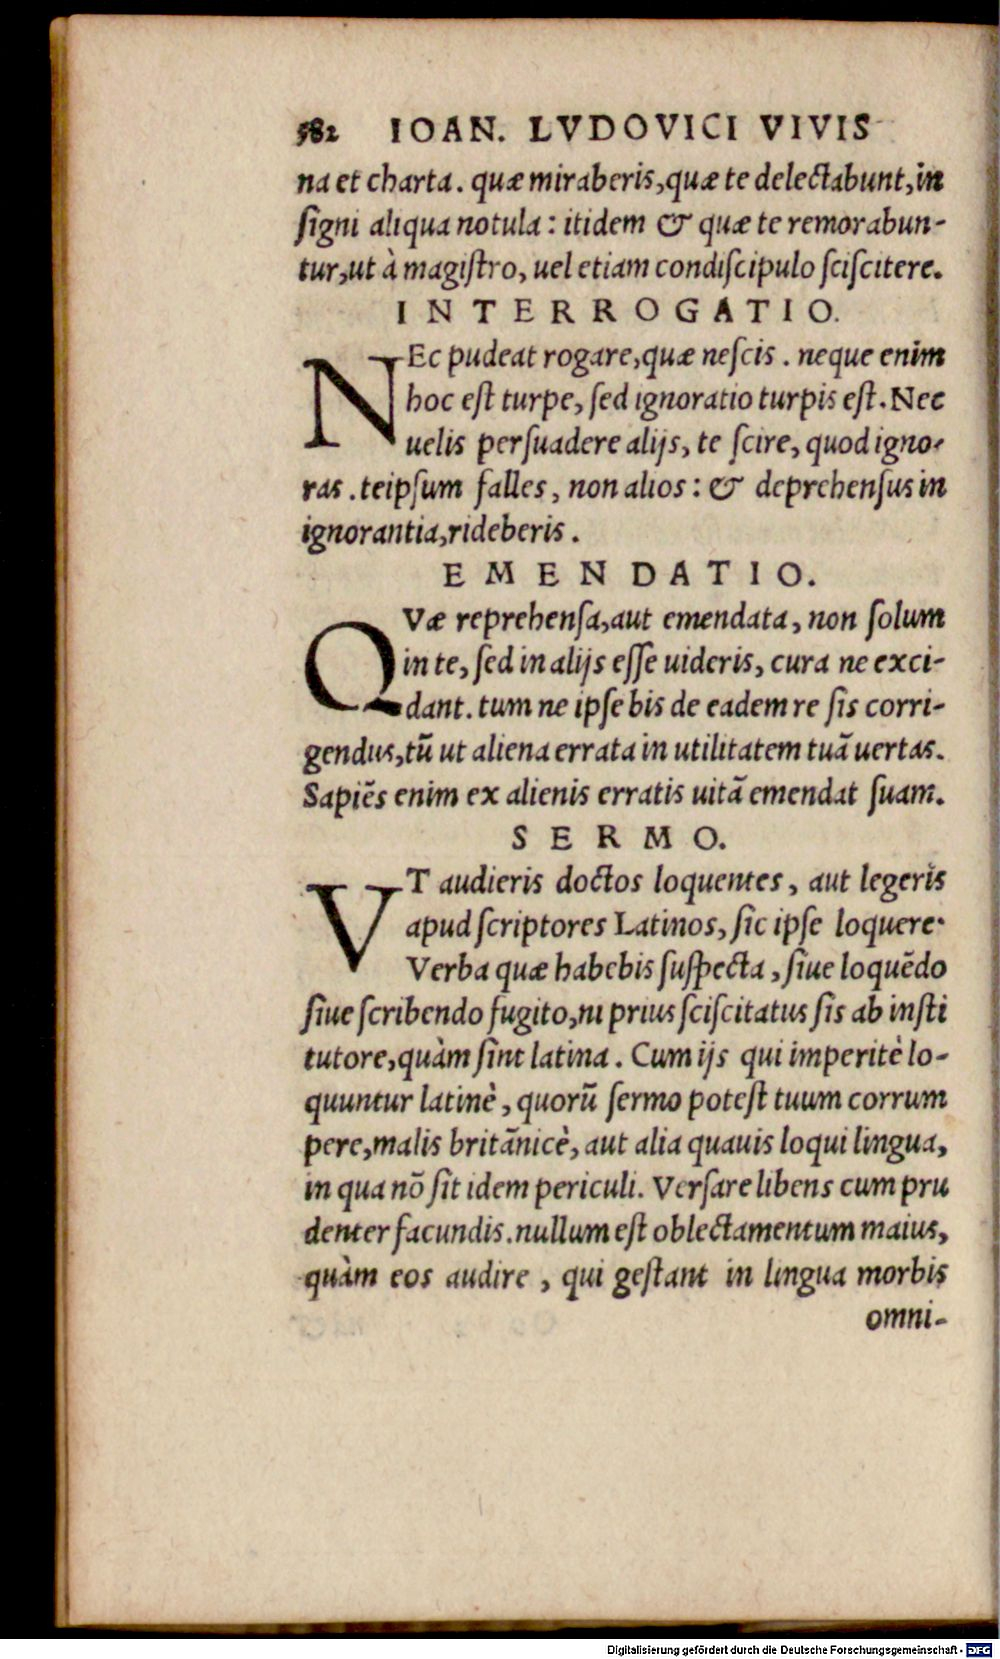 582 IOAN. LVDOVICI VIVIS
na et charta. quæ miraberis, quæ te delectabunt, in
ſigni aliqua notula: itidem & quæ te remorabun-
tur, ut à magiſtro, uel etiam condiſcipulo ſciſcitere.
INTERROGATIO.
NEc pudeat rogare, quæ neſcis. neque enim
hoc eſt turpe, ſed ignoratio turpis eſt. Nec
uelis perſuadere alijs, te ſcire, quod igno-
ras. teipſum falles, non alios: & deprehenſus in
ignorantia, rideberis.
EMENDATIO.
QVæ reprehenſa, aut emendata, non ſolum
in te, ſed in alijs eſſe uideris, cura ne exci-
dant. tum ne ipſe bis de eadem re ſis corri-
gendus, tū ut aliena errata in utilitatem tuā uertas.
Sapiēs enim ex alienis erratis uitā emendat ſuam.
SERMO.
VT audieris doctos loquentes, aut legeris
apud ſcriptores Latinos, ſic ipſe loquere.
Verba quæ habebis ſuſpecta, ſiue loquēdo
ſiue ſcribendo fugito, ni prius ſciſcitatus ſis ab inſti
tutore, quàm ſint latina. Cum ijs qui imperitè lo-
quuntur latinè, quorū ſermo poteſt tuum corrum
pere, malis britānicè, aut alia quauis loqui lingua,
in qua nō ſit idem periculi. Verſare libens cum pru
denter facundis. nullum eſt oblectamentum maius,
quàm eos audire, qui geſtant in lingua morbis
omni-
Digitalisierung gefördert durch die Deutsche Forschungsgemeinschaft - DFG